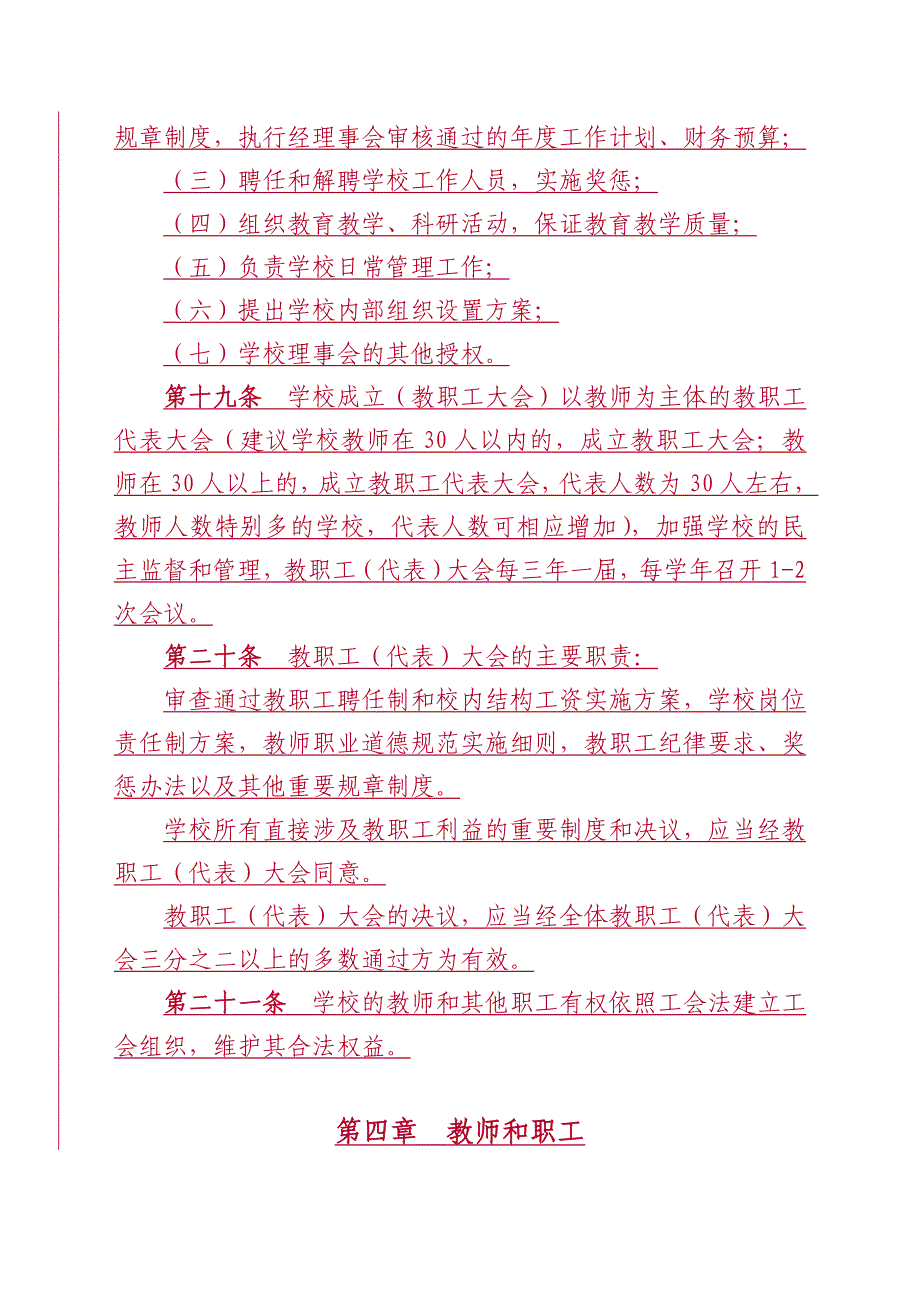 规章制度，执行经理事会审核通过的年度工作计划、财务预算；
（三）聘任和解聘学校工作人员，实施奖惩；
（四）组织教育教学、科研活动，保证教育教学质量；
（五）负责学校日常管理工作；
（六）提出学校内部组织设置方案；
（七）学校理事会的其他授权。
第十九条　学校成立（教职工大会）以教师为主体的教职工
代表大会（建议学校教师在 30 人以内的，成立教职工大会；教
师在 30 人以上的，成立教职工代表大会，代表人数为 30 人左右，
教师人数特别多的学校，代表人数可相应增加），加强学校的民
主监督和管理，教职工（代表）大会每三年一届，每学年召开 1-2
次会议。
第二十条　教职工（代表）大会的主要职责：
审查通过教职工聘任制和校内结构工资实施方案，学校岗位
责任制方案，教师职业道德规范实施细则，教职工纪律要求、奖
惩办法以及其他重要规章制度。
学校所有直接涉及教职工利益的重要制度和决议，应当经教
职工（代表）大会同意。
教职工（代表）大会的决议，应当经全体教职工（代表）大
会三分之二以上的多数通过方为有效。
第二十一条　学校的教师和其他职工有权依照工会法建立工
会组织，维护其合法权益。
第四章　教师和职工